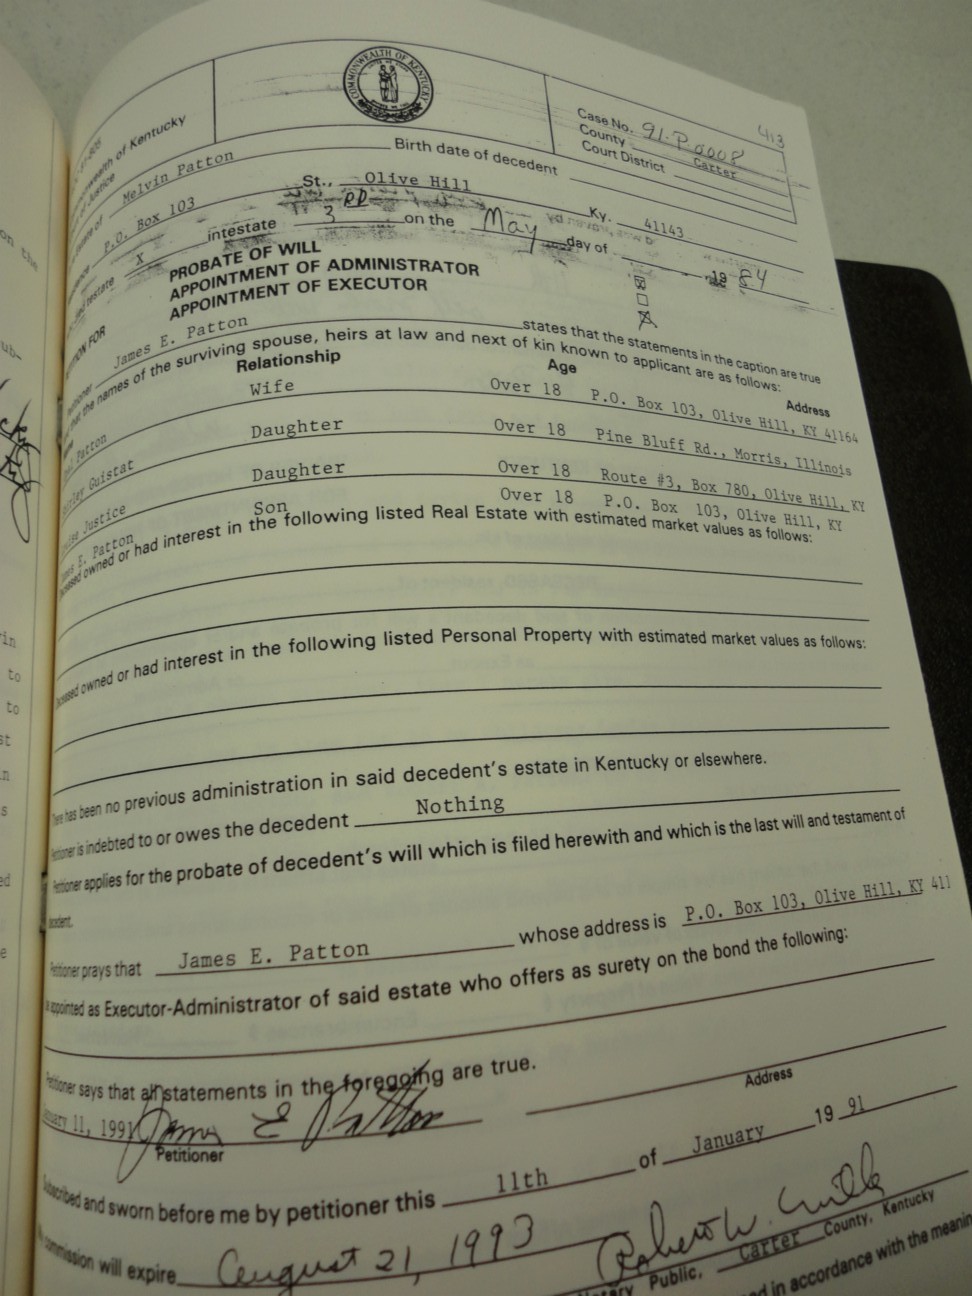 413
COMMONWEALTH OF KENTUCKY
Case No. 91-P-0008
County Carter
Court District
Commonwealth of Kentucky
of Justice
of Melvin Patton Birth date of decedent
P.O. Box 103 St., Olive Hill Ky. 41143
testate X intestate 3 RD on the May day of 19 84
PROBATE OF WILL
APPOINTMENT OF ADMINISTRATOR
APPOINTMENT OF EXECUTOR
FOR
James E. Patton states that the statements in the caption are true
that the names of the surviving spouse, heirs at law and next of kin known to applicant are as follows:
Relationship Age Address
Patton Wife Over 18 P.O. Box 103, Olive Hill, KY 41164
Guistat Daughter Over 18 Pine Bluff Rd., Morris, Illinois
Justice Daughter Over 18 Route #3, Box 780, Olive Hill, KY
E. Patton Son Over 18 P.O. Box 103, Olive Hill, KY
owned or had interest in the following listed Real Estate with estimated market values as follows:
owned or had interest in the following listed Personal Property with estimated market values as follows:
has been no previous administration in said decedent's estate in Kentucky or elsewhere.
Petitioner is indebted to or owes the decedent Nothing
Petitioner applies for the probate of decedent's will which is filed herewith and which is the last will and testament of
decedent.
Petitioner prays that James E. Patton whose address is P.O. Box 103, Olive Hill, KY 411
appointed as Executor-Administrator of said estate who offers as surety on the bond the following:
Petitioner says that all statements in the foregoing are true.
11, 1991 James E Patton
Petitioner Address
Subscribed and sworn before me by petitioner this 11th of January 19 91
commission will expire August 21, 1993 Robert W. Miller
Notary Public, Carter County, Kentucky
in accordance with the